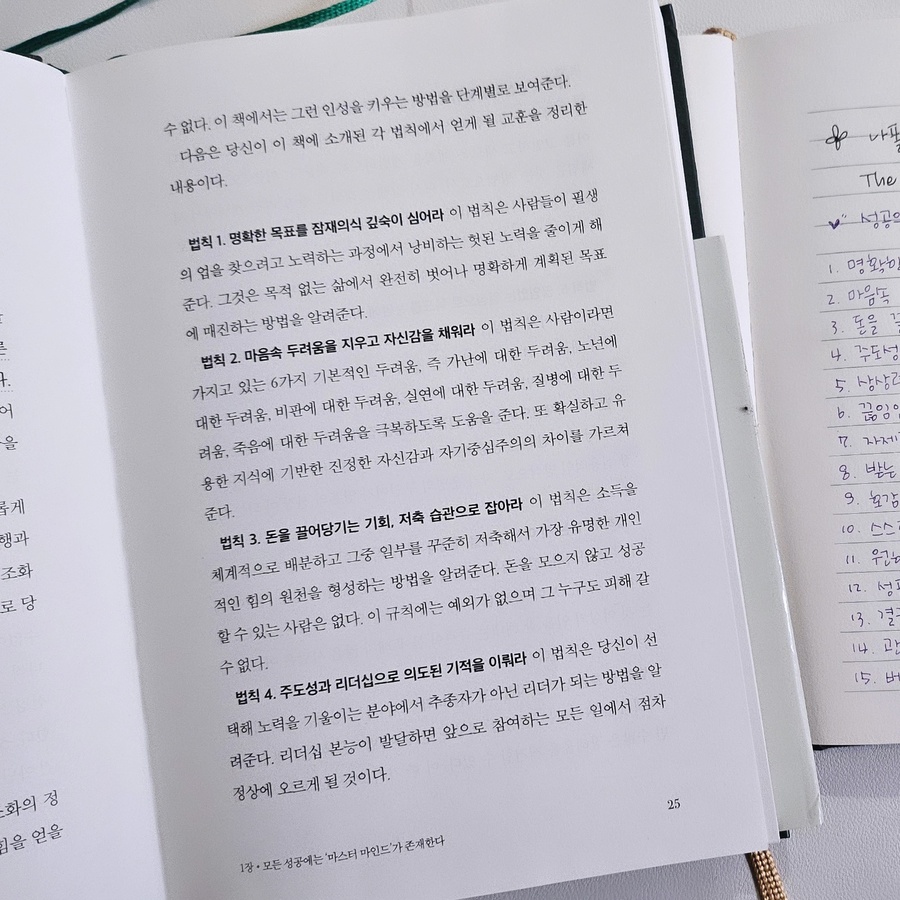 수 없다. 이 책에서는 그런 인성을 키우는 방법을 단계별로 보여준다.
다음은 당신이 이 책에 소개된 각 법칙에서 얻게 될 교훈을 정리한
내용이다.
법칙 1. 명확한 목표를 잠재의식 깊숙이 심어라 이 법칙은 사람들이 필생
의 업을 찾으려고 노력하는 과정에서 낭비하는 헛된 노력을 줄이게 해
준다. 그것은 목적 없는 삶에서 완전히 벗어나 명확하게 계획된 목표
에 매진하는 방법을 알려준다.
법칙 2. 마음속 두려움을 지우고 자신감을 채워라 이 법칙은 사람이라면
가지고 있는 6가지 기본적인 두려움, 즉 가난에 대한 두려움, 노년에
대한 두려움, 비판에 대한 두려움, 실연에 대한 두려움, 질병에 대한 두
려움, 죽음에 대한 두려움을 극복하도록 도움을 준다. 또 확실하고 유
용한 지식에 기반한 진정한 자신감과 자기중심주의의 차이를 가르쳐
준다.
법칙 3. 돈을 끌어당기는 기회, 저축 습관으로 잡아라 이 법칙은 소득을
체계적으로 배분하고 그중 일부를 꾸준히 저축해서 가장 유명한 개인
적인 힘의 원천을 형성하는 방법을 알려준다. 돈을 모으지 않고 성공
할 수 있는 사람은 없다. 이 규칙에는 예외가 없으며 그 누구도 피해 갈
수 없다.
법칙 4. 주도성과 리더십으로 의도된 기적을 이뤄라 이 법칙은 당신이 선
택해 노력을 기울이는 분야에서 추종자가 아닌 리더가 되는 방법을 알
려준다. 리더십 본능이 발달하면 앞으로 참여하는 모든 일에서 점차
정상에 오르게 될 것이다.
25
1장 • 모든 성공에는 '마스터 마인드'가 존재한다
어
을
롭게
행과
조화
로 당
조화의 정
힘을 얻을
나폴
The
성공의
1. 명확한
2. 마음속
3. 돈을 끌
4. 주도성
5. 상상력
6.
7. 자제
8. 받는
9. 호감
10. 스스
11. 원
12.
13.
14. 관
15.